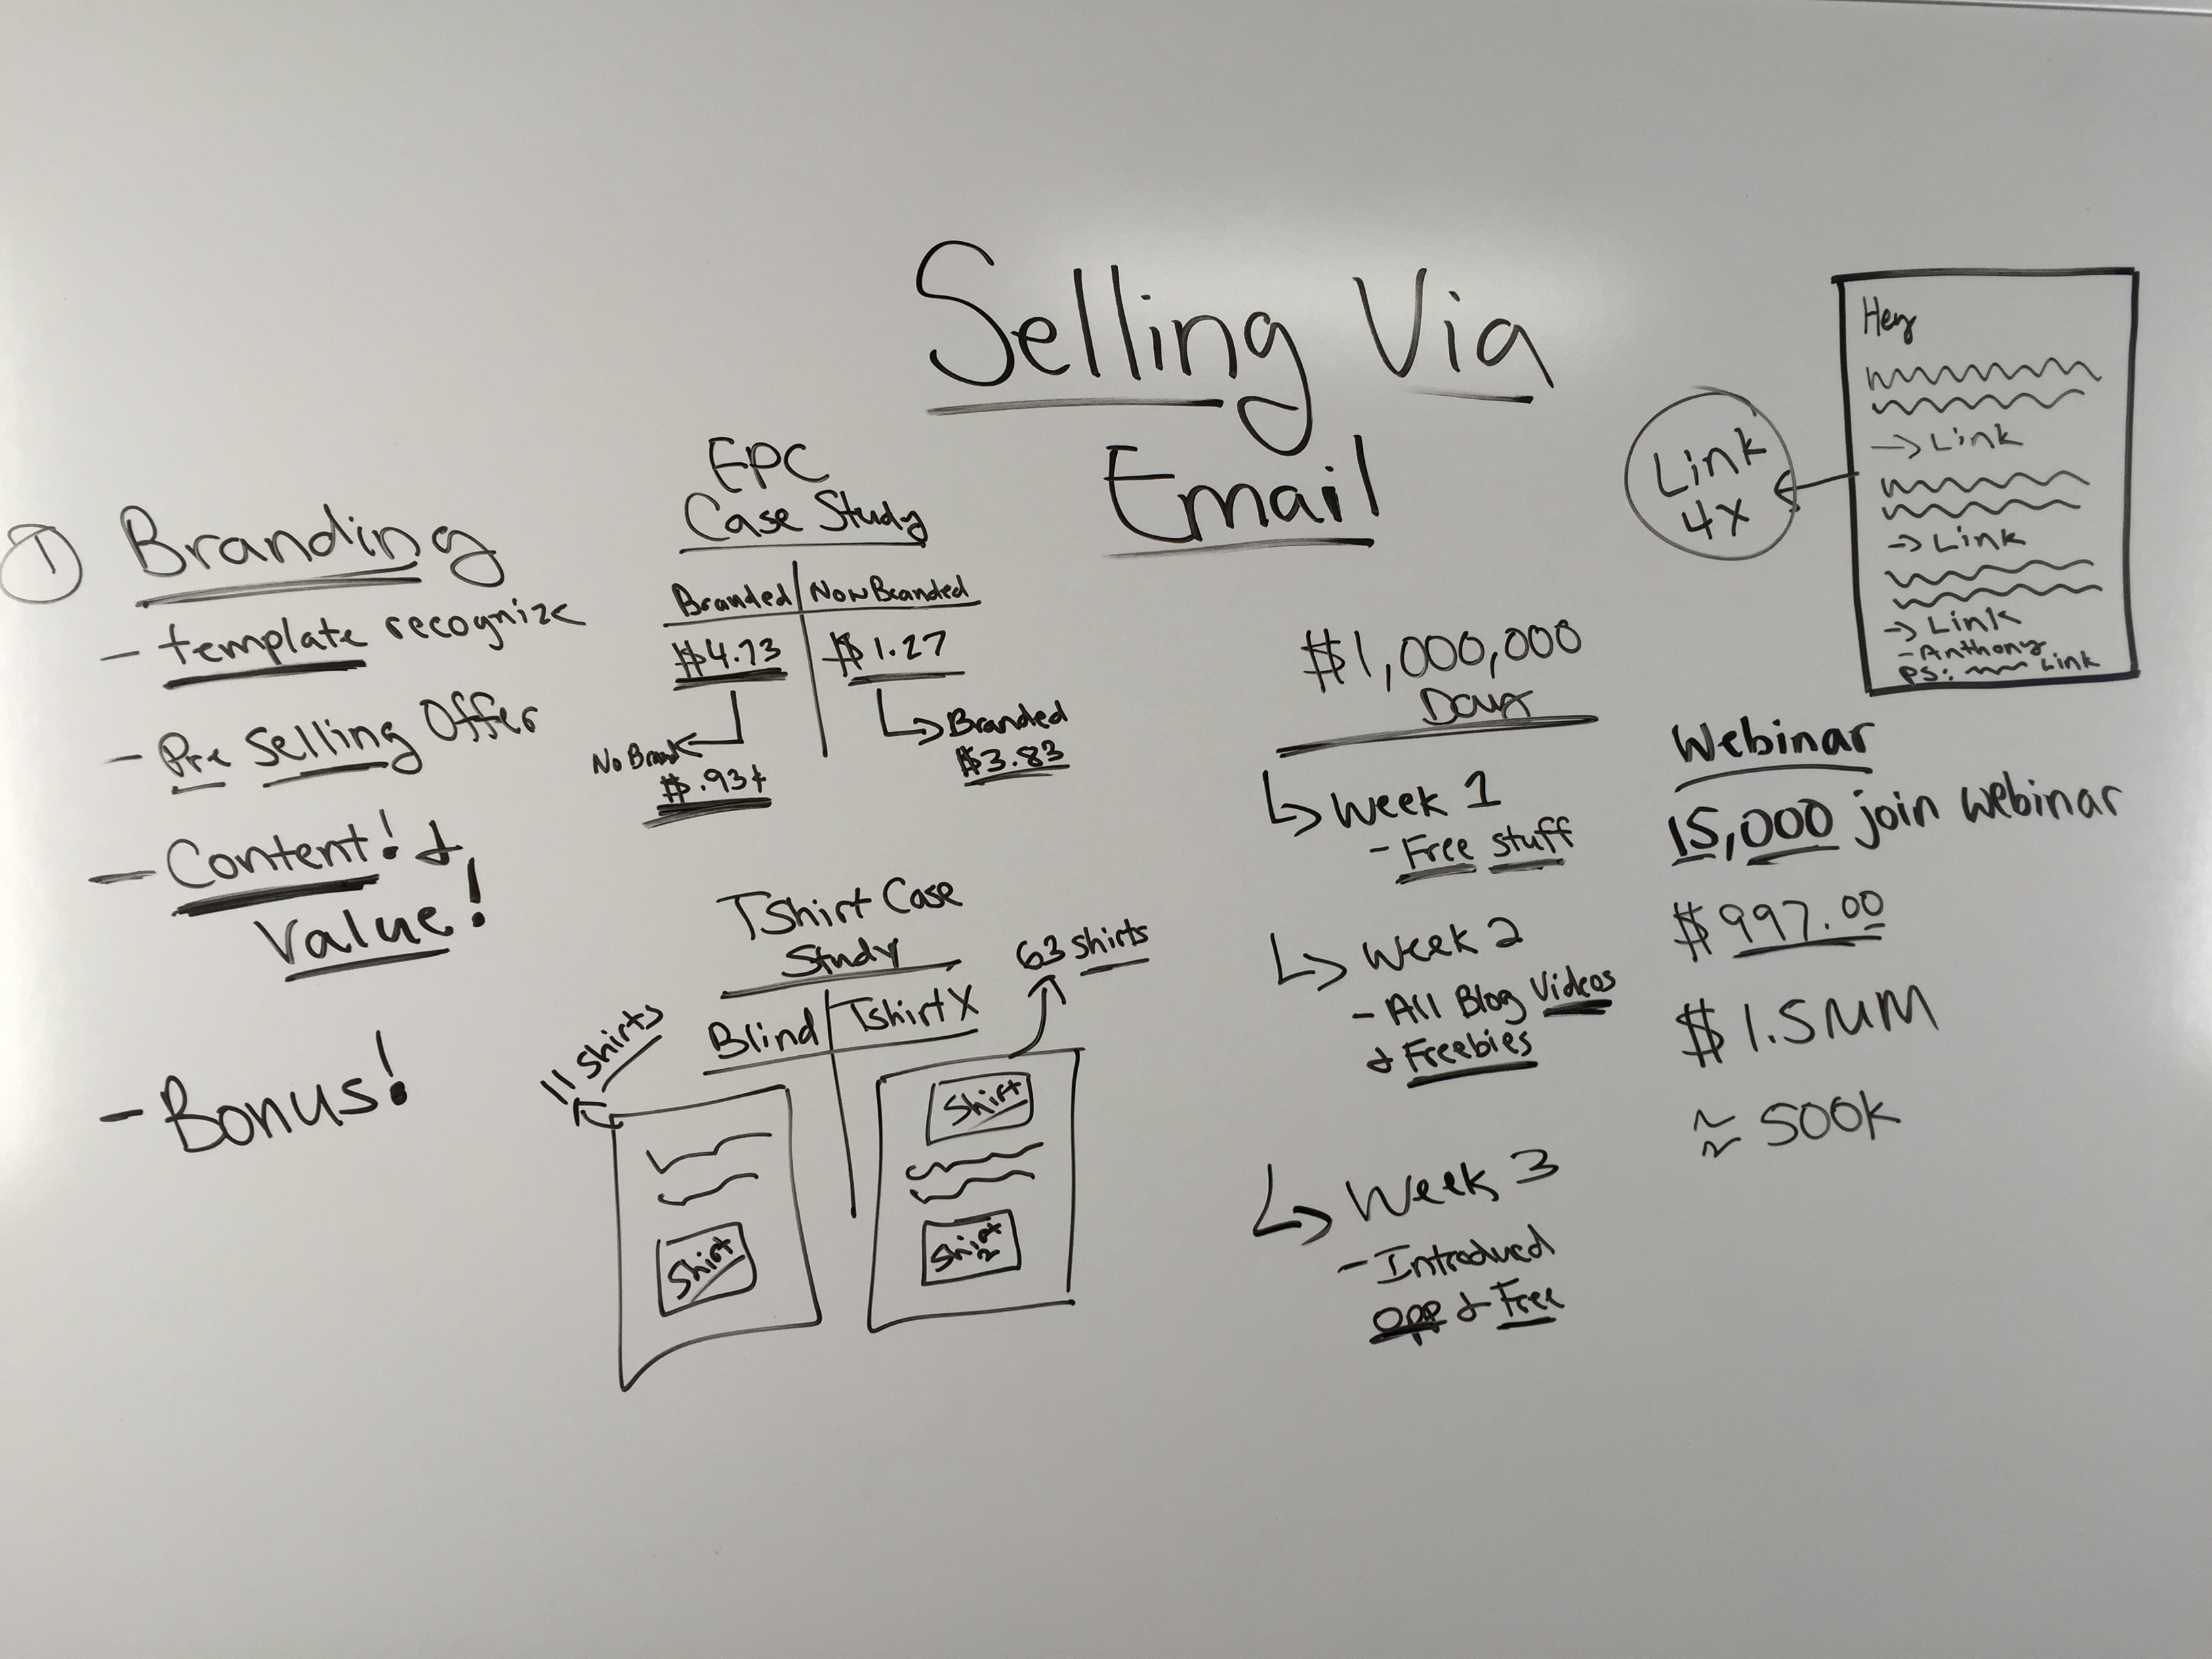 Selling Via
Email
① Branding
- template recognize
- Pre Selling Offer
- Content! &
Value!
- Bonus!
EPC
Case Study
Branded | Non Branded
$4.73 | $1.27
No Brand
$.93¢
Branded
$3.83
TShirt Case
Study
Blind | Tshirt X
11 shirts
63 shirts
Shirt
Shirt
Shirt
2
$1,000,000
Days
Week 1
- Free stuff
Week 2
- All Blog Videos
& Freebies
Week 3
- Introduced
opp & Free
Link
4X
Hey
→ Link
→ Link
→ Link
- Anthony
PS: Link
Webinar
15,000 join webinar
$997.00
$1.5MM
≈ 500K